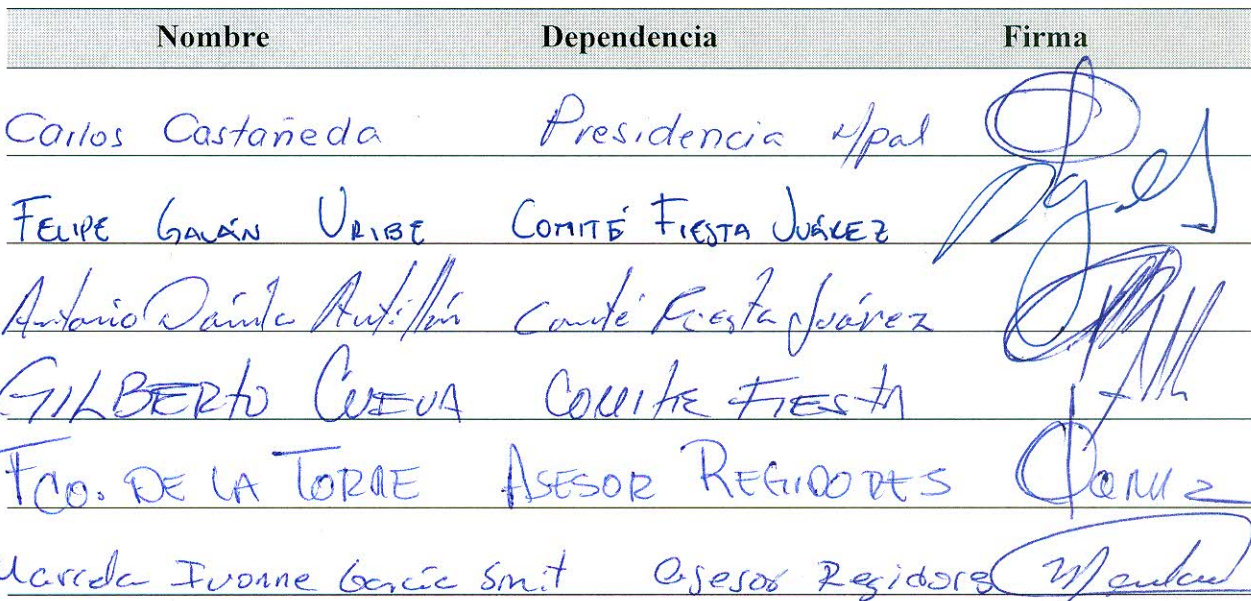 Nombre Dependencia Firma
Carlos Castañeda Presidencia Mpal
FELIPE GALÁN URIBE COMITÉ FIESTA JUÁREZ
Antonio Dávila Antillón Comité Fiesta Juárez
GILBERTO CUEVA COMITE FIESTA
FCO. DE LA TORRE ASESOR REGIDORES
Ivonne García Asesor Regidores